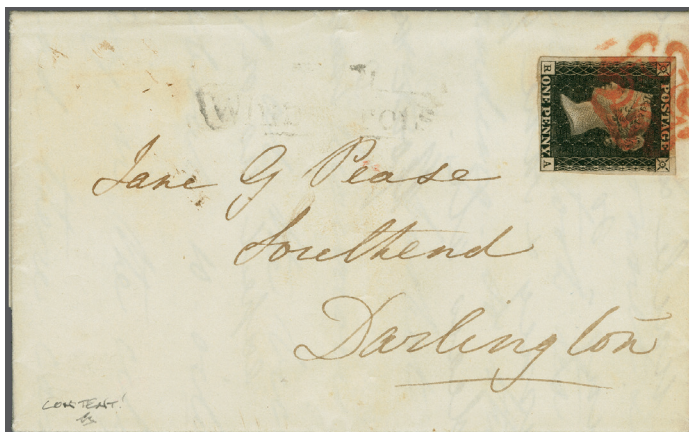 POSTAGE
R ONE PENNY A
Jane G Pease
Southend
Darlington
CONTENT!